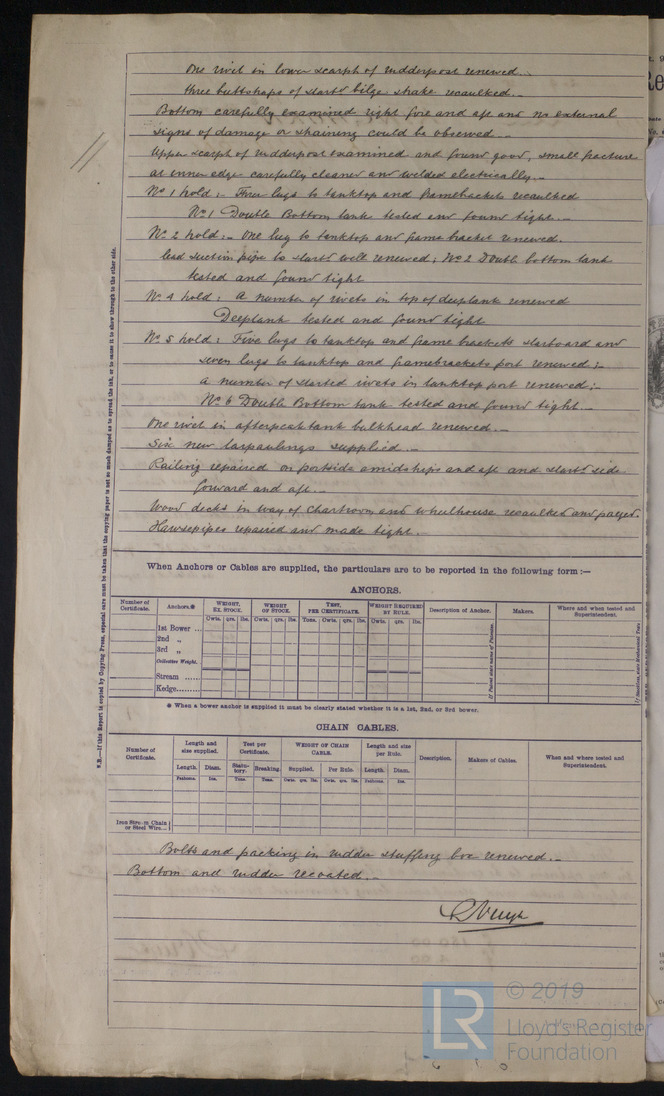 One rivet in lower scarph of rudderpost renewed.-
three buttshaps of starbd bilge shake recaulked.-
Bottom carefully examined right fore and aft and no external
signs of damage or straining could be observed.-
Upper scarph of rudderpost examined and found good, small fracture
at inner edge carefully cleaned and welded electrically.-
No 1 hold:- Four lugs to tanktop and framebrackets recaulked
No 1 Double Bottom tank tested and found tight.-
No 2 hold:- One lug to tanktop and frame bracket renewed.
lead suction pipe to starbd well renewed; No 2 Double bottom tank
tested and found tight
No 4 hold: A number of rivets in top of deeptank renewed
Deeptank tested and found tight
No 5 hold: Five lugs to tanktop and frame brackets starboard and
seven lugs to tanktop and framebrackets port renewed:-
a number of started rivets in tanktop port renewed:-
No 6 Double Bottom tank tested and found tight.-
One rivet in afterpeak tank bulkhead renewed.-
Six new tarpaulings supplied.-
Railing repaired on portside amidships and aft and starbd side
forward and aft.-
Wood decks in way of Chartroom and wheelhouse recaulked and payed.
Hawsepipes repaired and made tight.-
N.B.—If this Report is copied by Copying Press, especial care must be taken that the copying paper is not so much damped as to spread the ink, or to cause it to show through to the other side.
When Anchors or Cables are supplied, the particulars are to be reported in the following form:—
ANCHORS.
Number of Certificate. Anchors.* WEIGHT, EX. STOCK. WEIGHT OF STOCK. TEST, PER CERTIFICATE. WEIGHT REQUIRED BY RULE. Description of Anchor. Makers. Where and when tested and Superintendent.
Cwts. qrs. lbs. Cwts. qrs. lbs. Tons. Cwts. qrs. lbs. Cwts. qrs. lbs.
1st Bower ...
2nd „
3rd „
Collective Weight.
Stream ......
Kedge.........
* When a bower anchor is supplied it must be clearly stated whether it is a 1st, 2nd, or 3rd bower.
CHAIN CABLES.
Number of Certificate. Length and size supplied. Test per Certificate. WEIGHT OF CHAIN CABLE. Length and size per Rule. Description. Makers of Cables. When and where tested and Superintendent.
Length. Diam. Statutory. Breaking. Supplied. Per Rule. Length. Diam.
Fathoms. Ins. Tons. Tons. Cwts. qrs. lbs. Cwts. qrs. lbs. Fathoms. Ins.
Iron Stream Chain or Steel Wire...
Bolts and packing in rudder stuffing box renewed.-
Bottom and rudder recoated.-
© 2019
Lloyd's Register
Foundation
LR